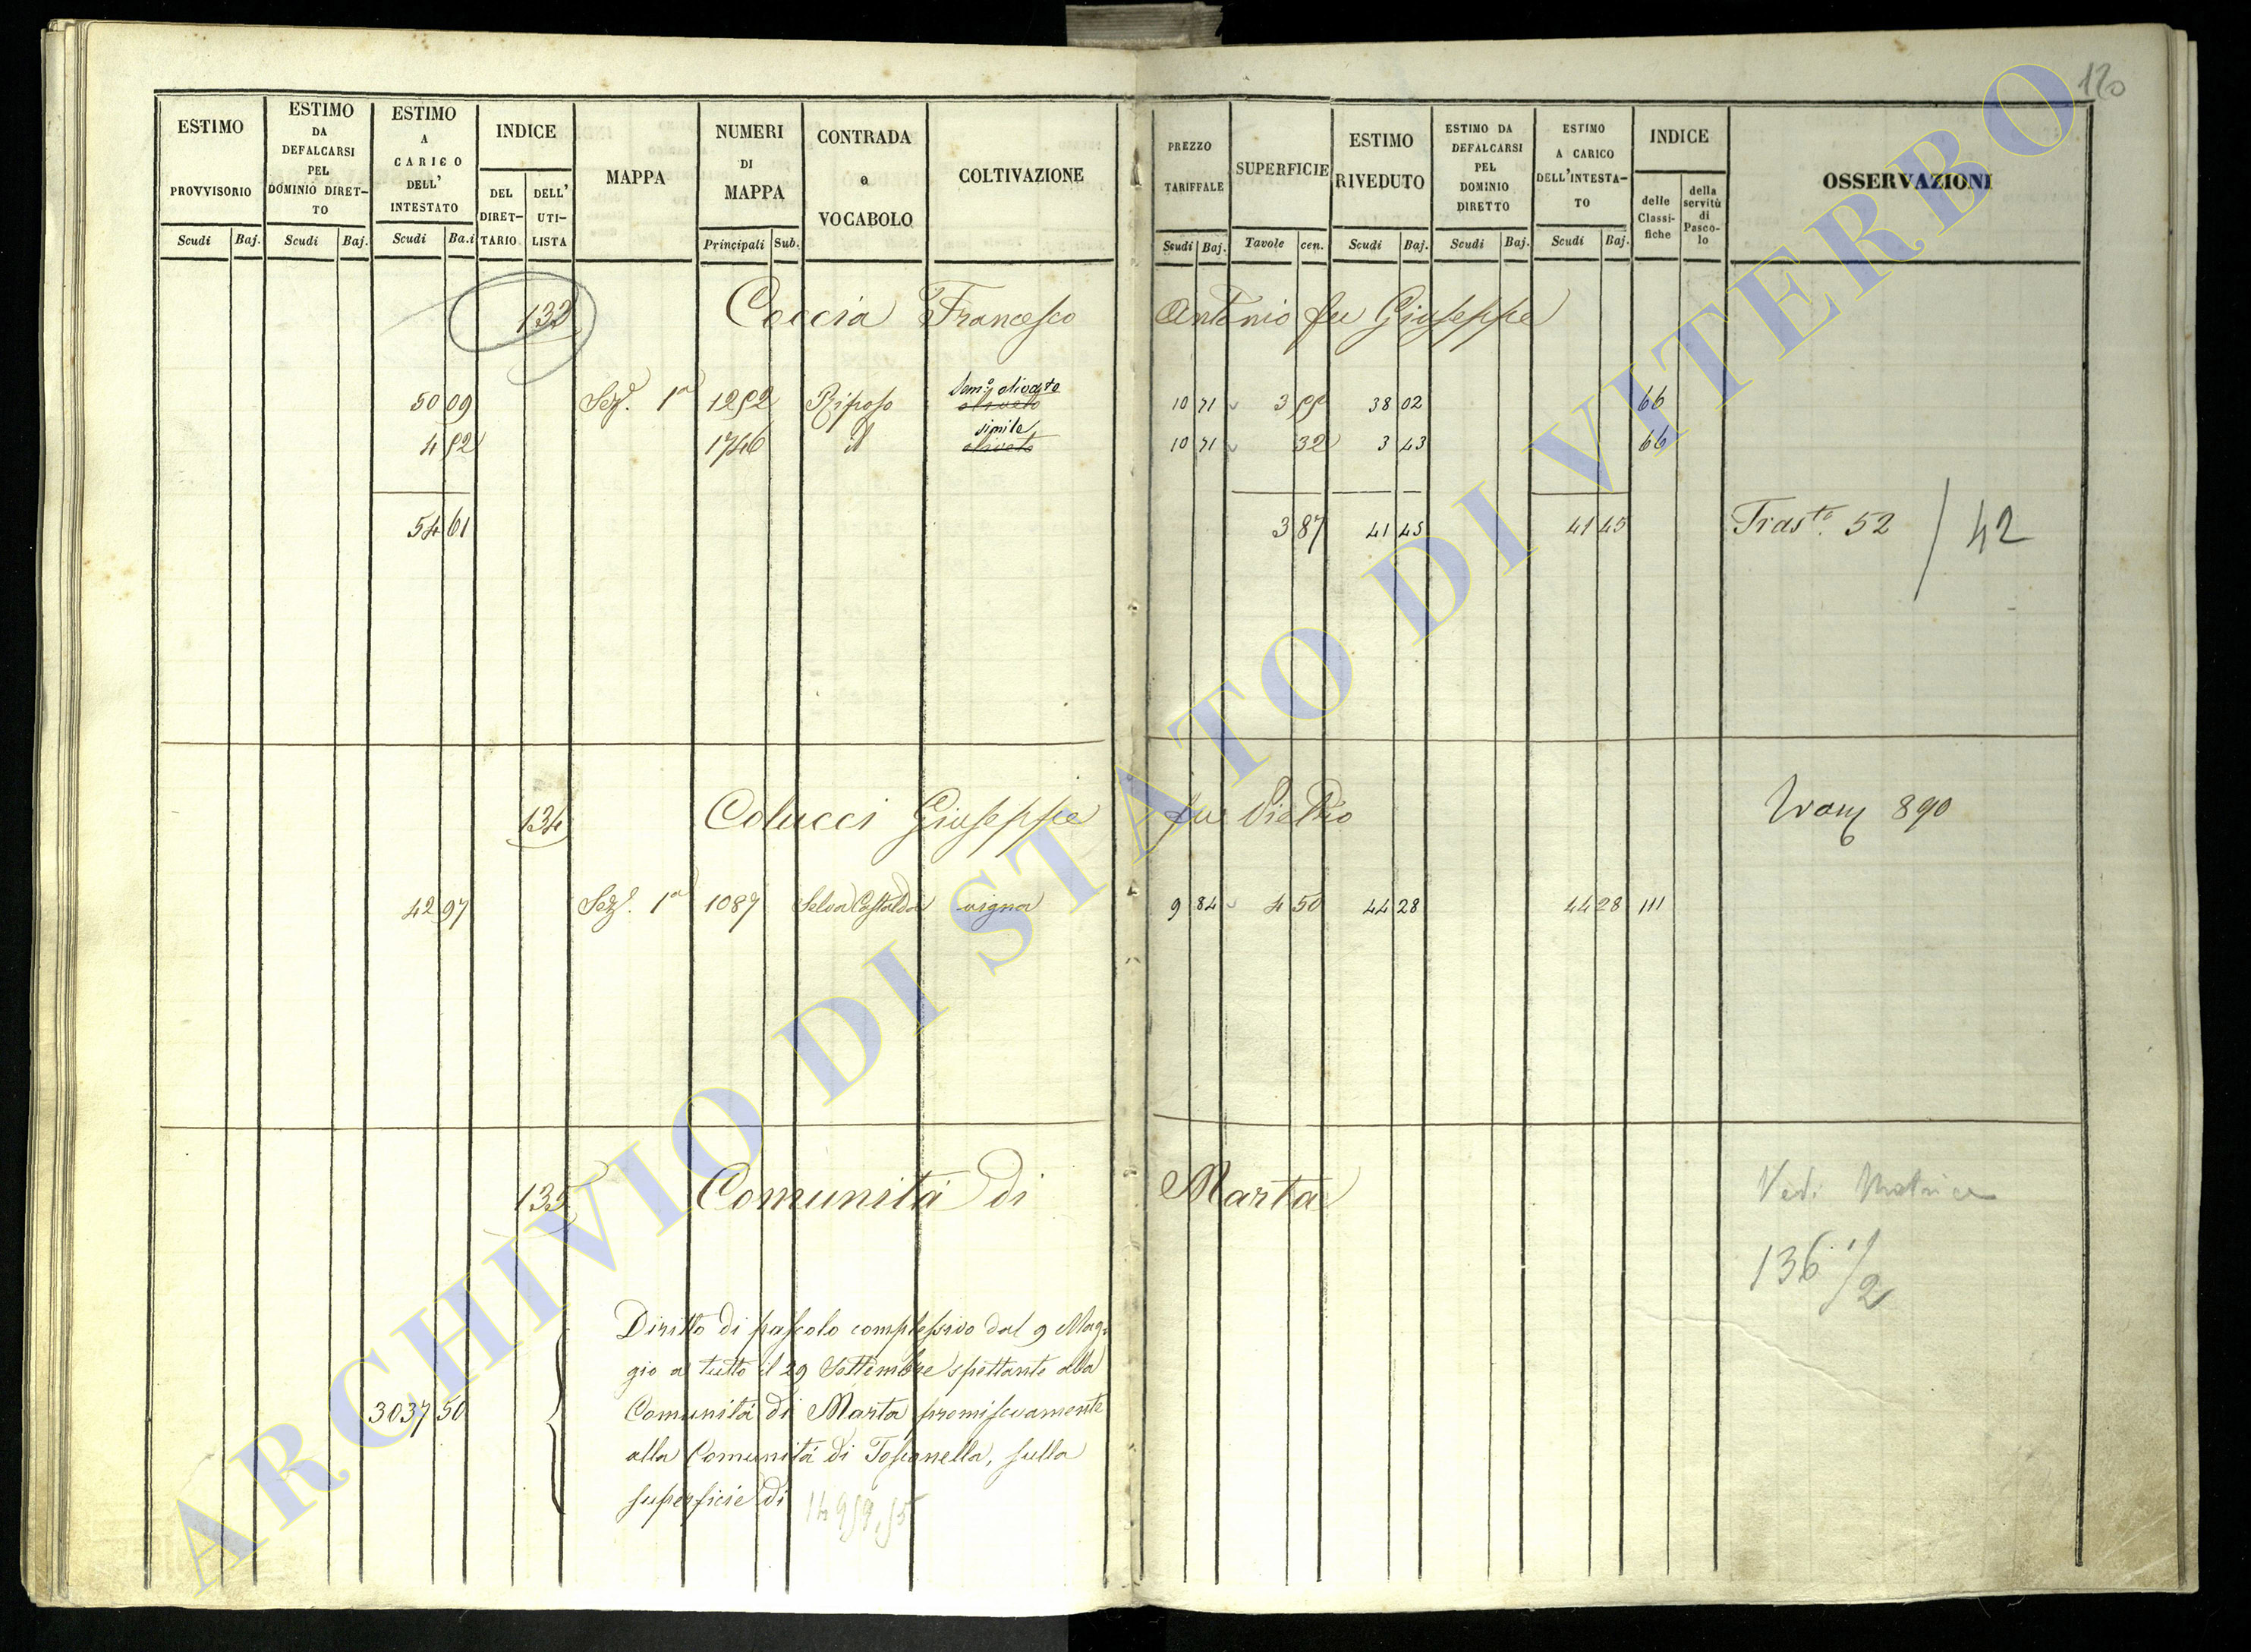 120
ESTIMO PROVVISORIO
ESTIMO DA DEFALCARSI PEL DOMINIO DIRET-TO
ESTIMO A CARICO DELL' INTESTATO
INDICE
DEL DIRET-TARIO
DELL' UTI-LISTA
MAPPA
NUMERI DI MAPPA
CONTRADA o VOCABOLO
COLTIVAZIONE
PREZZO TARIFFALE
SUPERFICIE
ESTIMO RIVEDUTO
ESTIMO DA DEFALCARSI PEL DOMINIO DIRETTO
ESTIMO A CARICO DELL'INTESTA-TO
INDICE
delle Classi-fiche
della servitù di Pasco-lo
OSSERVAZIONI
Scudi Baj. Scudi Baj. Scudi Ba.i Principali Sub. Scudi Baj. Tavole cen. Scudi Baj. Scudi Baj. Scudi Baj.
132 Coccia Francesco Antonio fu Giuseppe
50 09 Sez. 1a 1252 Riposo Sem.o olivato oliveto 10 71 3 55 38 02 66
4 52 1746 id simile oliveto 10 71 32 3 43 66
54 61 3 87 41 45 41 45 Trast. 52 / 42
134 Colucci Giuseppe fu Pietro 890
42 97 Sez. 1a 1087 Selva Castalda vigna 9 84 4 50 44 28 44 28 111
135 Comunità di Marta Vedi Matrice
136 1/2
Diritto di pascolo complessivo dal 9 Mag-
gio a tutto il 29 Settembre spettante alla
3037 50 Comunità di Marta promiscuamente
alla Comunità di Toscanella, sulla
superficie di
ARCHIVIO DI STATO DI VITERBO